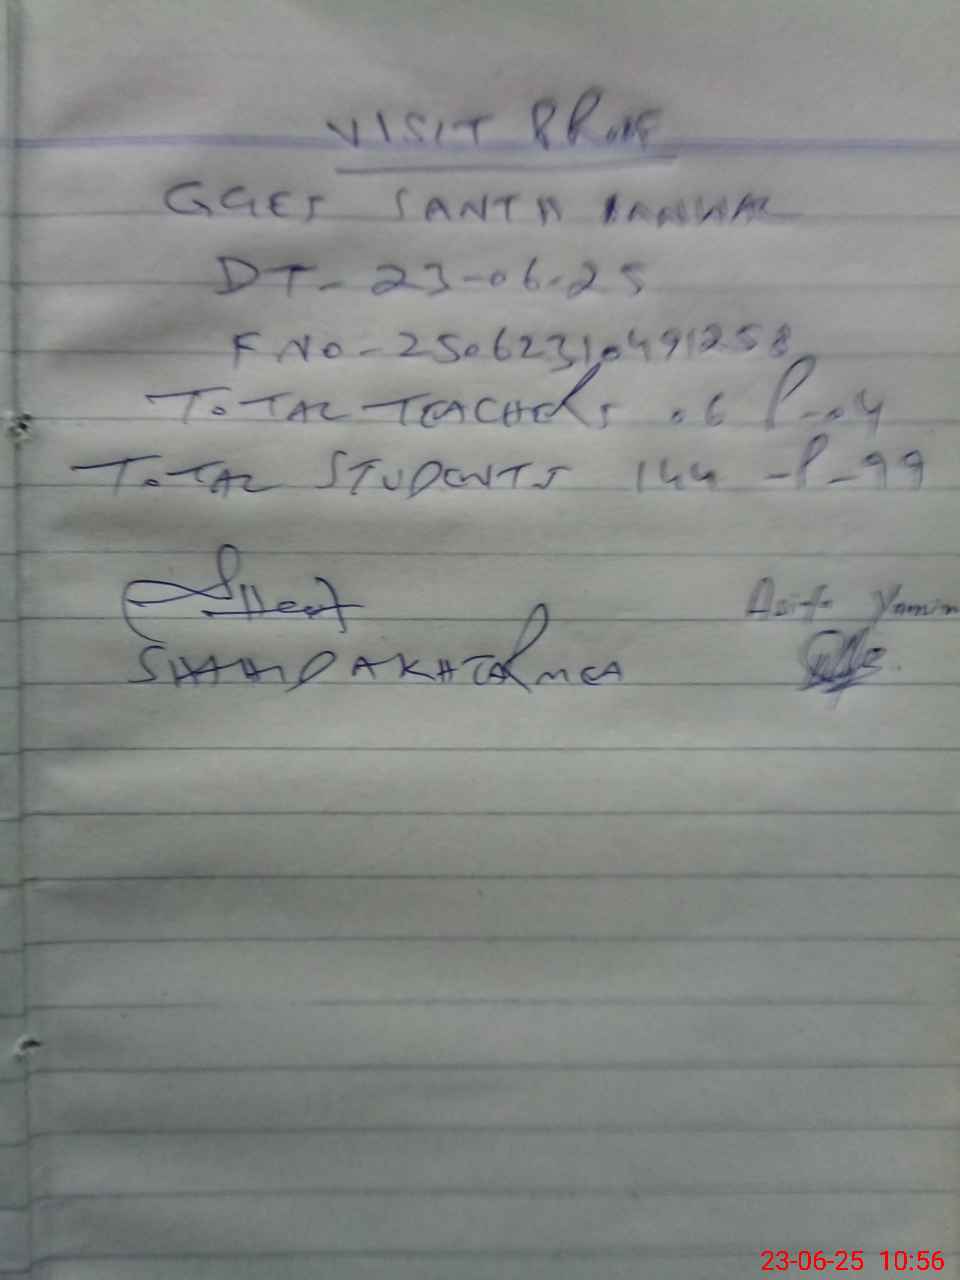 VISIT PROF
GGES SANTH
DT- 23-06-25
F NO - 25062310491258
TOTAL TEACHERS 06 P-04
TOTAL STUDENTS 144 -P-99
Asifa Yamin
SHAHID AKHTAR MEA
23-06-25 10:56